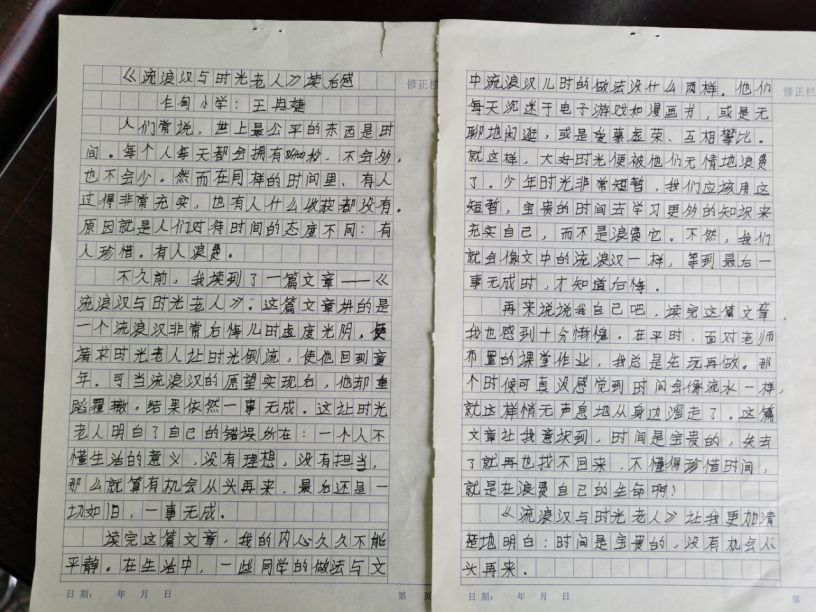 《流浪汉与时光老人》读后感
修正栏
乍甸小学：王冉婕
人们常说，世上最公平的东西是时
间。每个人每天都会拥有86400秒，不会多，
也不会少。然而在同样的时间里，有人
过得非常充实，也有人什么收获都没有。
原因就是人们对待时间的态度不同：有
人珍惜。有人浪费。
不久前，我读到了一篇文章——《
流浪汉与时光老人》。这篇文章讲的是
一个流浪汉非常后悔儿时虚度光阴，便
请求时光老人让时光倒流，使他回到童
年。可当流浪汉的愿望实现后，他却重
蹈覆辙，结果依然一事无成。这让时光
老人明白了自己的错误所在：一个人不
懂生活的意义，没有理想，没有担当，
那么就算有机会从头再来，最后还是一
切如旧，一事无成。
读完这篇文章，我的内心久久不能
平静。在生活中，一些同学的做法与文
日期： 年 月 日
第 页
中流浪汉儿时的做法没什么两样。他们
修正栏
每天沉迷于电子游戏和漫画书，或是无
聊地闲逛，或是爱慕虚荣、互相攀比。
就这样，大好时光便被他们无情地浪费
了。少年时光非常短暂，我们应该用这
短暂，宝贵的时间去学习更多的知识来
充实自己，而不是浪费它。不然，我们
就会像文中的流浪汉一样，等到最后一
事无成时，才知道后悔。
再来说说我自己吧，读完这篇文章，
我也感到十分惭愧。在平时，面对老师
布置的课堂作业，我总是先玩再做。那
个时候可真没感觉到时间会像流水一样，
就这样悄无声息地从身边溜走了。这篇
文章让我意识到，时间是宝贵的，失去
了就再也找不回来，不懂得珍惜时间，
就是在浪费自己的生命啊！
《流浪汉与时光老人》让我更加清
楚地明白：时间是宝贵的，没有机会从
头再来。
日期： 年 月 日
第